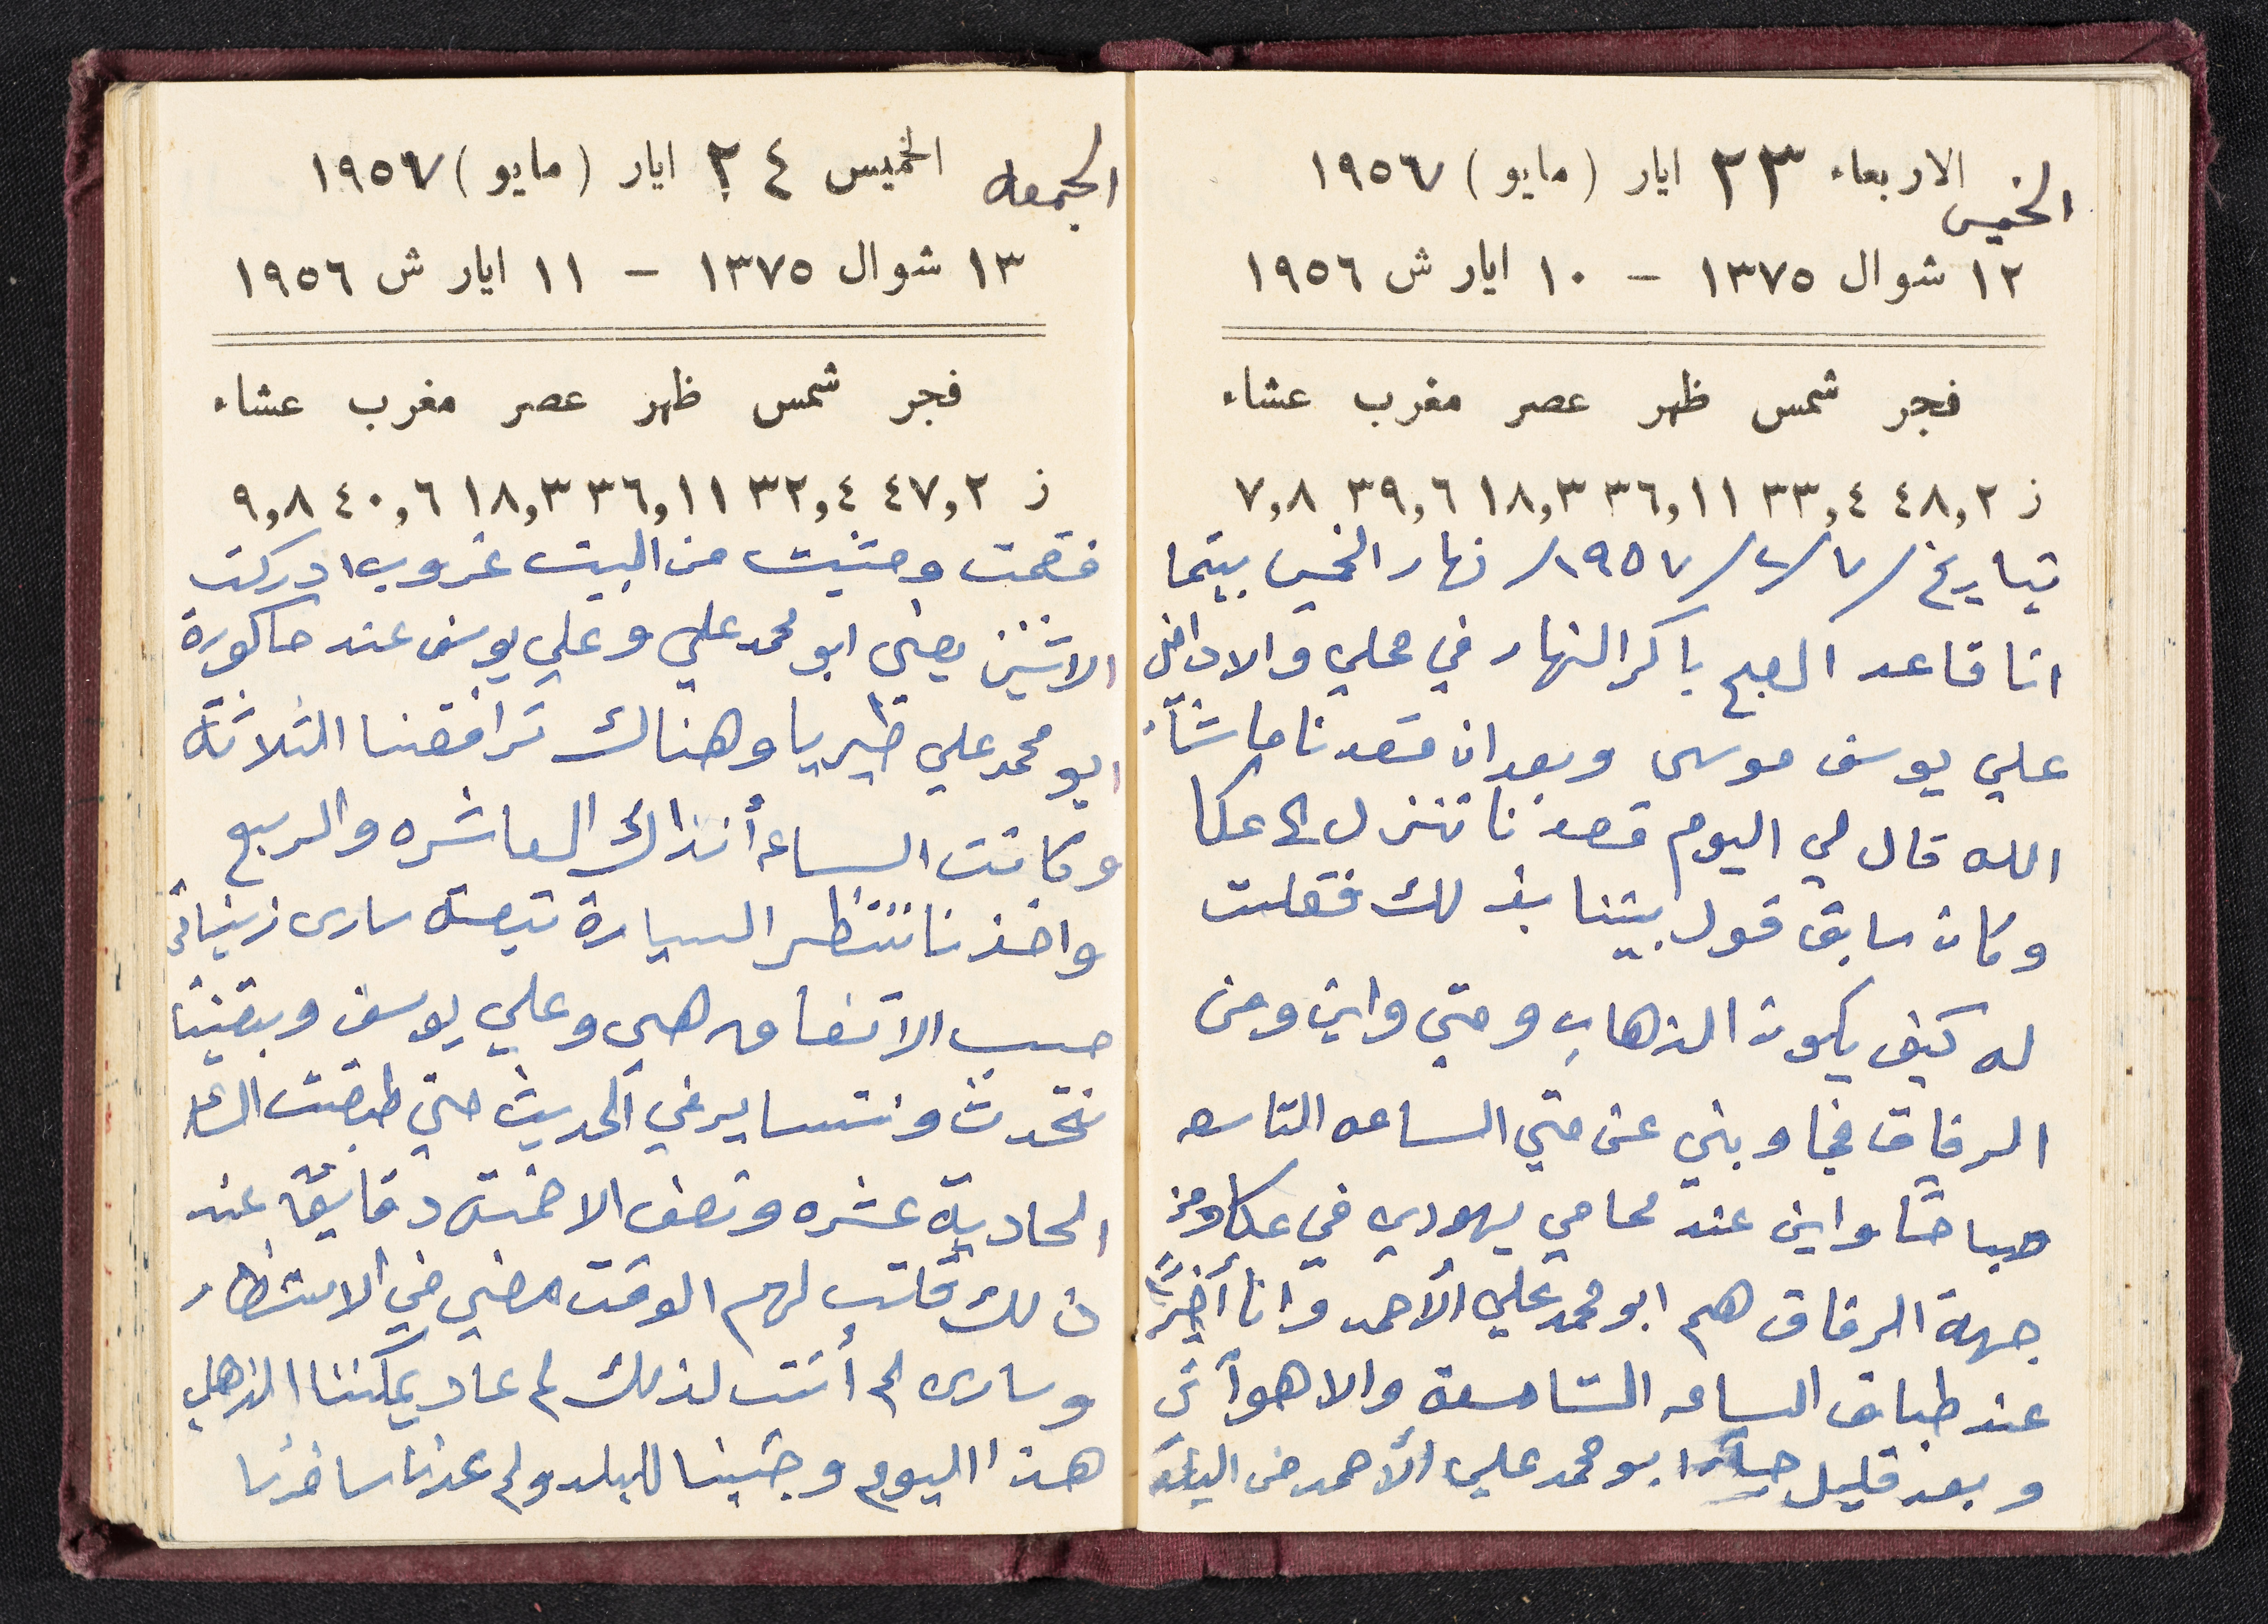 الخميس الاربعاء ٢٣ ايار (مايو) ١٩٥٦٧
١٢ شوال ١٣٧٥ – ١٠ ايار ش ١٩٥٦
فجر شمس ظهر عصر مغرب عشاء
ز ٤٨,٢ ٣٣,٤ ٣٦,١١ ١٨,٣ ٣٩,٦ ٧,٨
بتاريخ ٧/٢/١٩٥٧/ نهار الخميس بينما
انا قاعد الصبح باكر النهار في محلي والا دافش
علي يوسف موسى وبعد ان قعدنا ما شاء
الله قال لي اليوم قصدنا ننزل الى عكا
وكان سابق قول بيننا بذلك فقلت
له كيف يكون الذهاب ومتي واين ومن
الرفاق فجاوبني عن متي الساعه التاسعه
صباحًا واين عند محامي يهودي في عكا ومن
جهة الرفاق هم ابو محمد علي الأحمد وانا أخيرًا
عند طباق الساعه التاسعة والا هو أتى
وبعد قليل جاء ابو محمد علي الأحمد من البلد
الجمعه الخميس ٢٤ ايار (مايو) ١٩٥٦٧
١٣ شوال ١٣٧٥ – ١١ ايار ش ١٩٥٦
فجر شمس ظهر عصر مغرب عشاء
ز ٤٧,٢ ٣٢,٤ ٣٦,١١ ١٨,٣ ٤٠,٦ ٩,٨
فقمت ومشيت من البيت غروب ادركت
الاثنين يعني ابو محمد علي وعلي يوسف عند حاكورة
ابو محمد علي طيريا وهناك ترافقنا الثلاثة
وكانت الساعه أنذاك العاشره والربع
واخذنا ننتظر السيارة تبعة سارى زنياتى
حسب الاتفاق هي وعلي يوسف وبقينا
نتحدث ونتساير في الحديث حتي طبقت الساعه
الحادية عشره ونصف الا خمسة دقايق عند
ذلك قلت لهم الوقت مضي في الانتظار
وسارى لم أتت لذلك لم عاد يمكننا الذهاب
هذا اليوم وجئنا للبلد ولم عدنا سافرنا